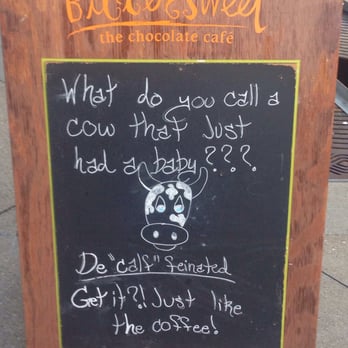 Bittersweet
the chocolate café
What do you call a
cow that just
had a baby???
De "calf" feinated
Get it?! Just like
the coffee!